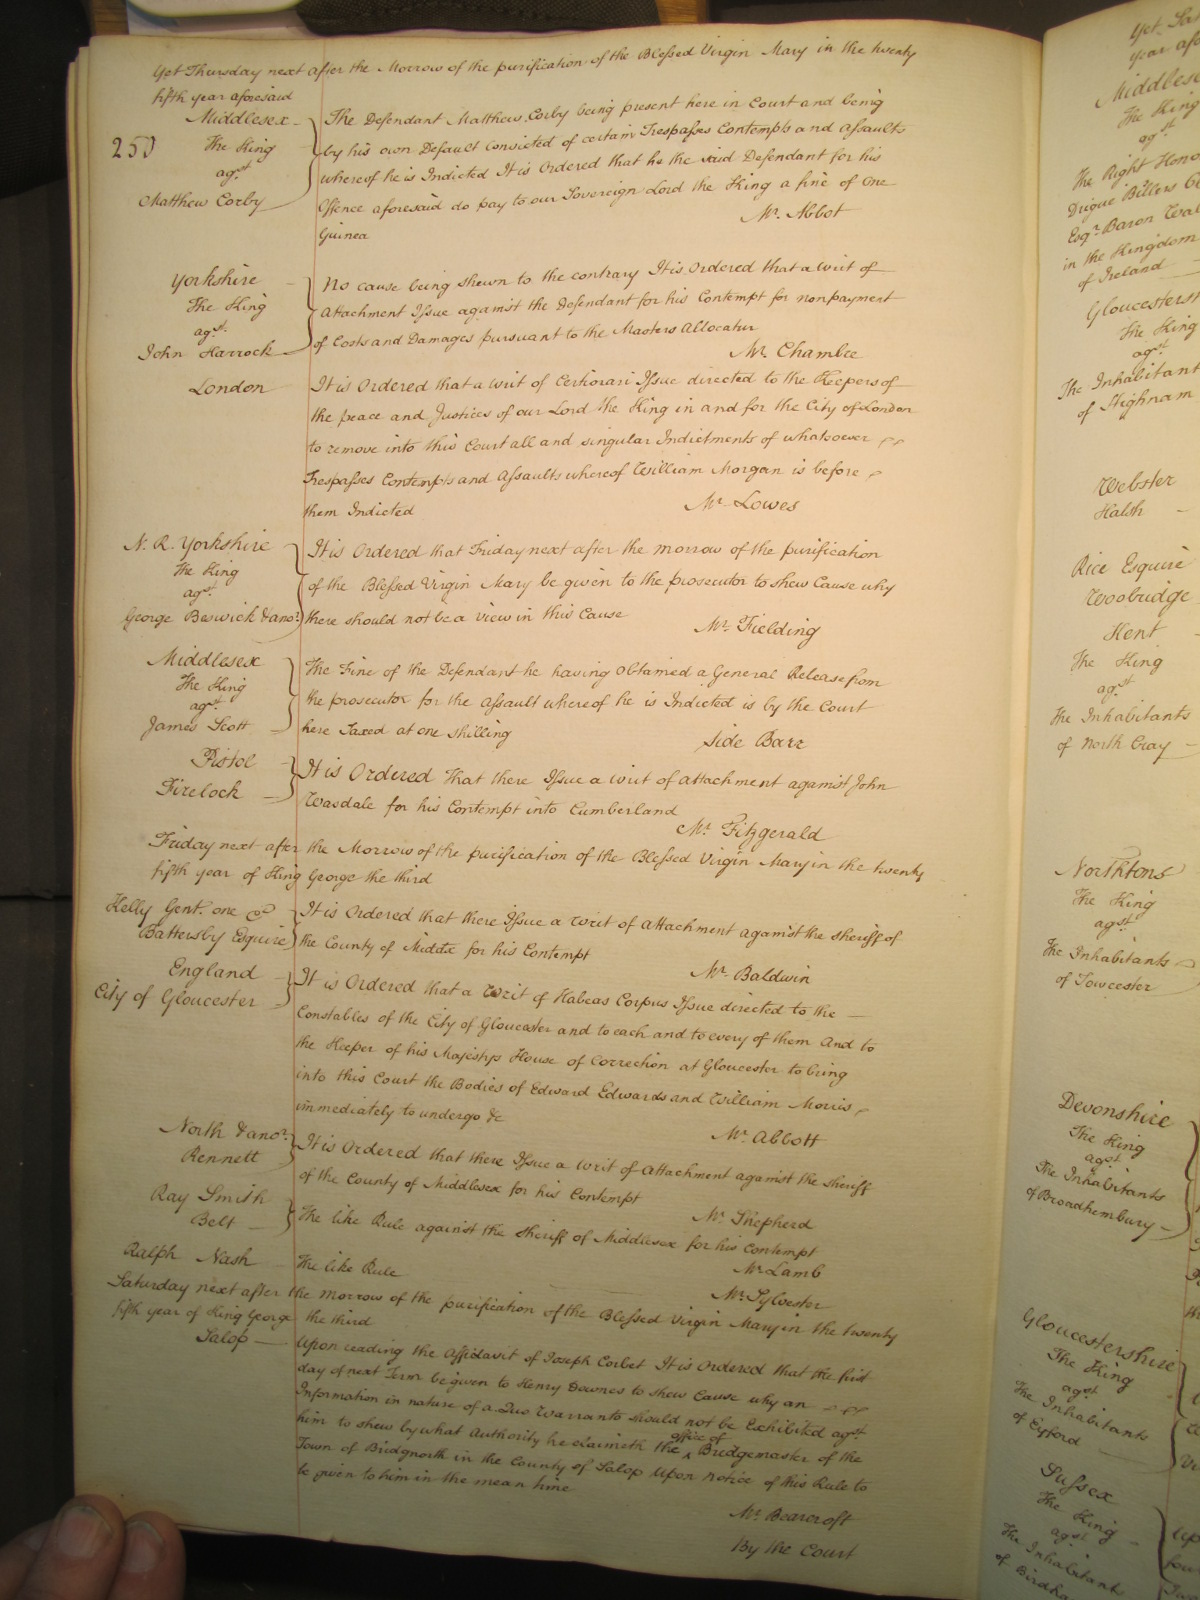 Yet Thursday next after the Morrow of the purification of the Blessed Virgin Mary in the twenty
fifth year aforesaid
250
Middlesex
The King
agst.
Matthew Corby
The Defendant Matthew Corby being present here in Court and being
by his own Default Convicted of certain Trespasses Contempts and Assaults
whereof he is Indicted It is Ordered that he the said Defendant for his
Offence aforesaid do pay to our Sovereign Lord the King a fine of One
Guinea
Mr. Abbot
Yorkshire
The King
agst.
John Harrock
No cause being shewn to the contrary It is Ordered that a writ of
Attachment Issue against the Defendant for his Contempt for nonpayment
of Costs and Damages pursuant to the Masters Allocatur
Mr. Chambre
London
It is Ordered that a writ of Certiorari Issue directed to the Keepers of
the peace and Justices of our Lord the King in and for the City of London
to remove into this Court all and singular Indictments of whatsoever
Trespasses Contempts and Assaults whereof William Morgan is before
them Indicted
Mr. Lowes
N. R. Yorkshire
The King
agst.
George Beswick & anor.
It is Ordered that Friday next after the morrow of the purification
of the Blessed Virgin Mary be given to the prosecutor to shew Cause why
there should not be a view in this Cause
Mr. Fielding
Middlesex
The King
agst.
James Scott
The Fine of the Defendant he having Obtained a General Release from
the prosecutor for the Assault whereof he is Indicted is by the Court
here Taxed at one shilling
Side Barr
Pistol
Firelock
It is Ordered That there Issue a writ of attachment against John
Wasdale for his Contempt into Cumberland
Mr. Fitzgerald
Friday next after the Morrow of the purification of the Blessed Virgin Mary in the twenty
fifth year of King George the third
Kelly Gent. one &c
Battersby Esquire
It is Ordered that there Issue a writ of Attachment against the sheriff of
the County of Middx for his Contempt
Mr. Baldwin
England
City of Gloucester
It is Ordered that a Writ of Habeas Corpus Issue directed to the
Constables of the City of Gloucester and to each and to every of them And to
the Keeper of his Majestys House of Correction at Gloucester to bring
into this Court the Bodies of Edward Edwards and William Morris
immediately to undergo &c
Mr. Abbott
North & anor.
Rennett
It is Ordered that there Issue a writ of Attachment against the sheriff
of the County of Middlesex for his Contempt
Mr. Shepherd
Ray Smith
Belt
The like Rule against the Sheriff of Middlesex for his Contempt
Mr. Lamb
Ralph Nash
The like Rule
Mr. Sylvester
Saturday next after the morrow of the purification of the Blessed Virgin Mary in the twenty
fifth year of King George the third
Salop
Upon reading the Affidavit of Joseph Corbet It is Ordered that the first
day of next Term be given to Henry Downes to shew Cause why an
Information in nature of a Quo Warranto should not be Exhibited agst.
him to shew by what Authority he claimeth the office of Bridgemaster of the
Town of Bridgnorth in the County of Salop Upon notice of this Rule to
be given to him in the mean time
Mr. Bearcroft
By the Court
Yet Sa
year afo
Middlese
The King
agst
The Right Hono
Drigue Billers
Esqr. Baron Wal
in the Kingdom
of Ireland
Gloucesters
The King
agst
The Inhabitant
of Highnam
Webster
Halsh
Rice Esquire
Woobridge
Kent
The King
agst
The Inhabitants
of North Cray
Northtons
The King
agst
The Inhabitants
of Towcester
Devonshire
The King
agst
The Inhabitants
of Broadhembury
Gloucestershire
The King
agst
The Inhabitants
of Eyford
Sussex
The King
agst
The Inhabitants
of Birdha